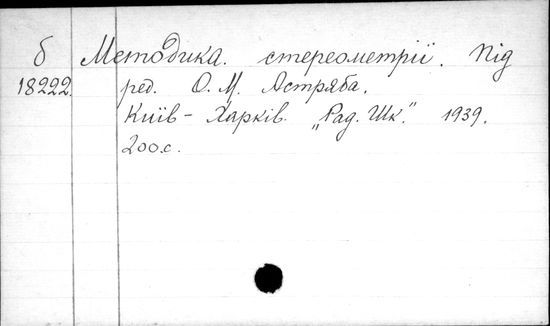 б Методика стереометрії. Під
18222. ред. О. М. Астряба.
Київ - Харків. „Рад. Шк." 1939.
200 с.